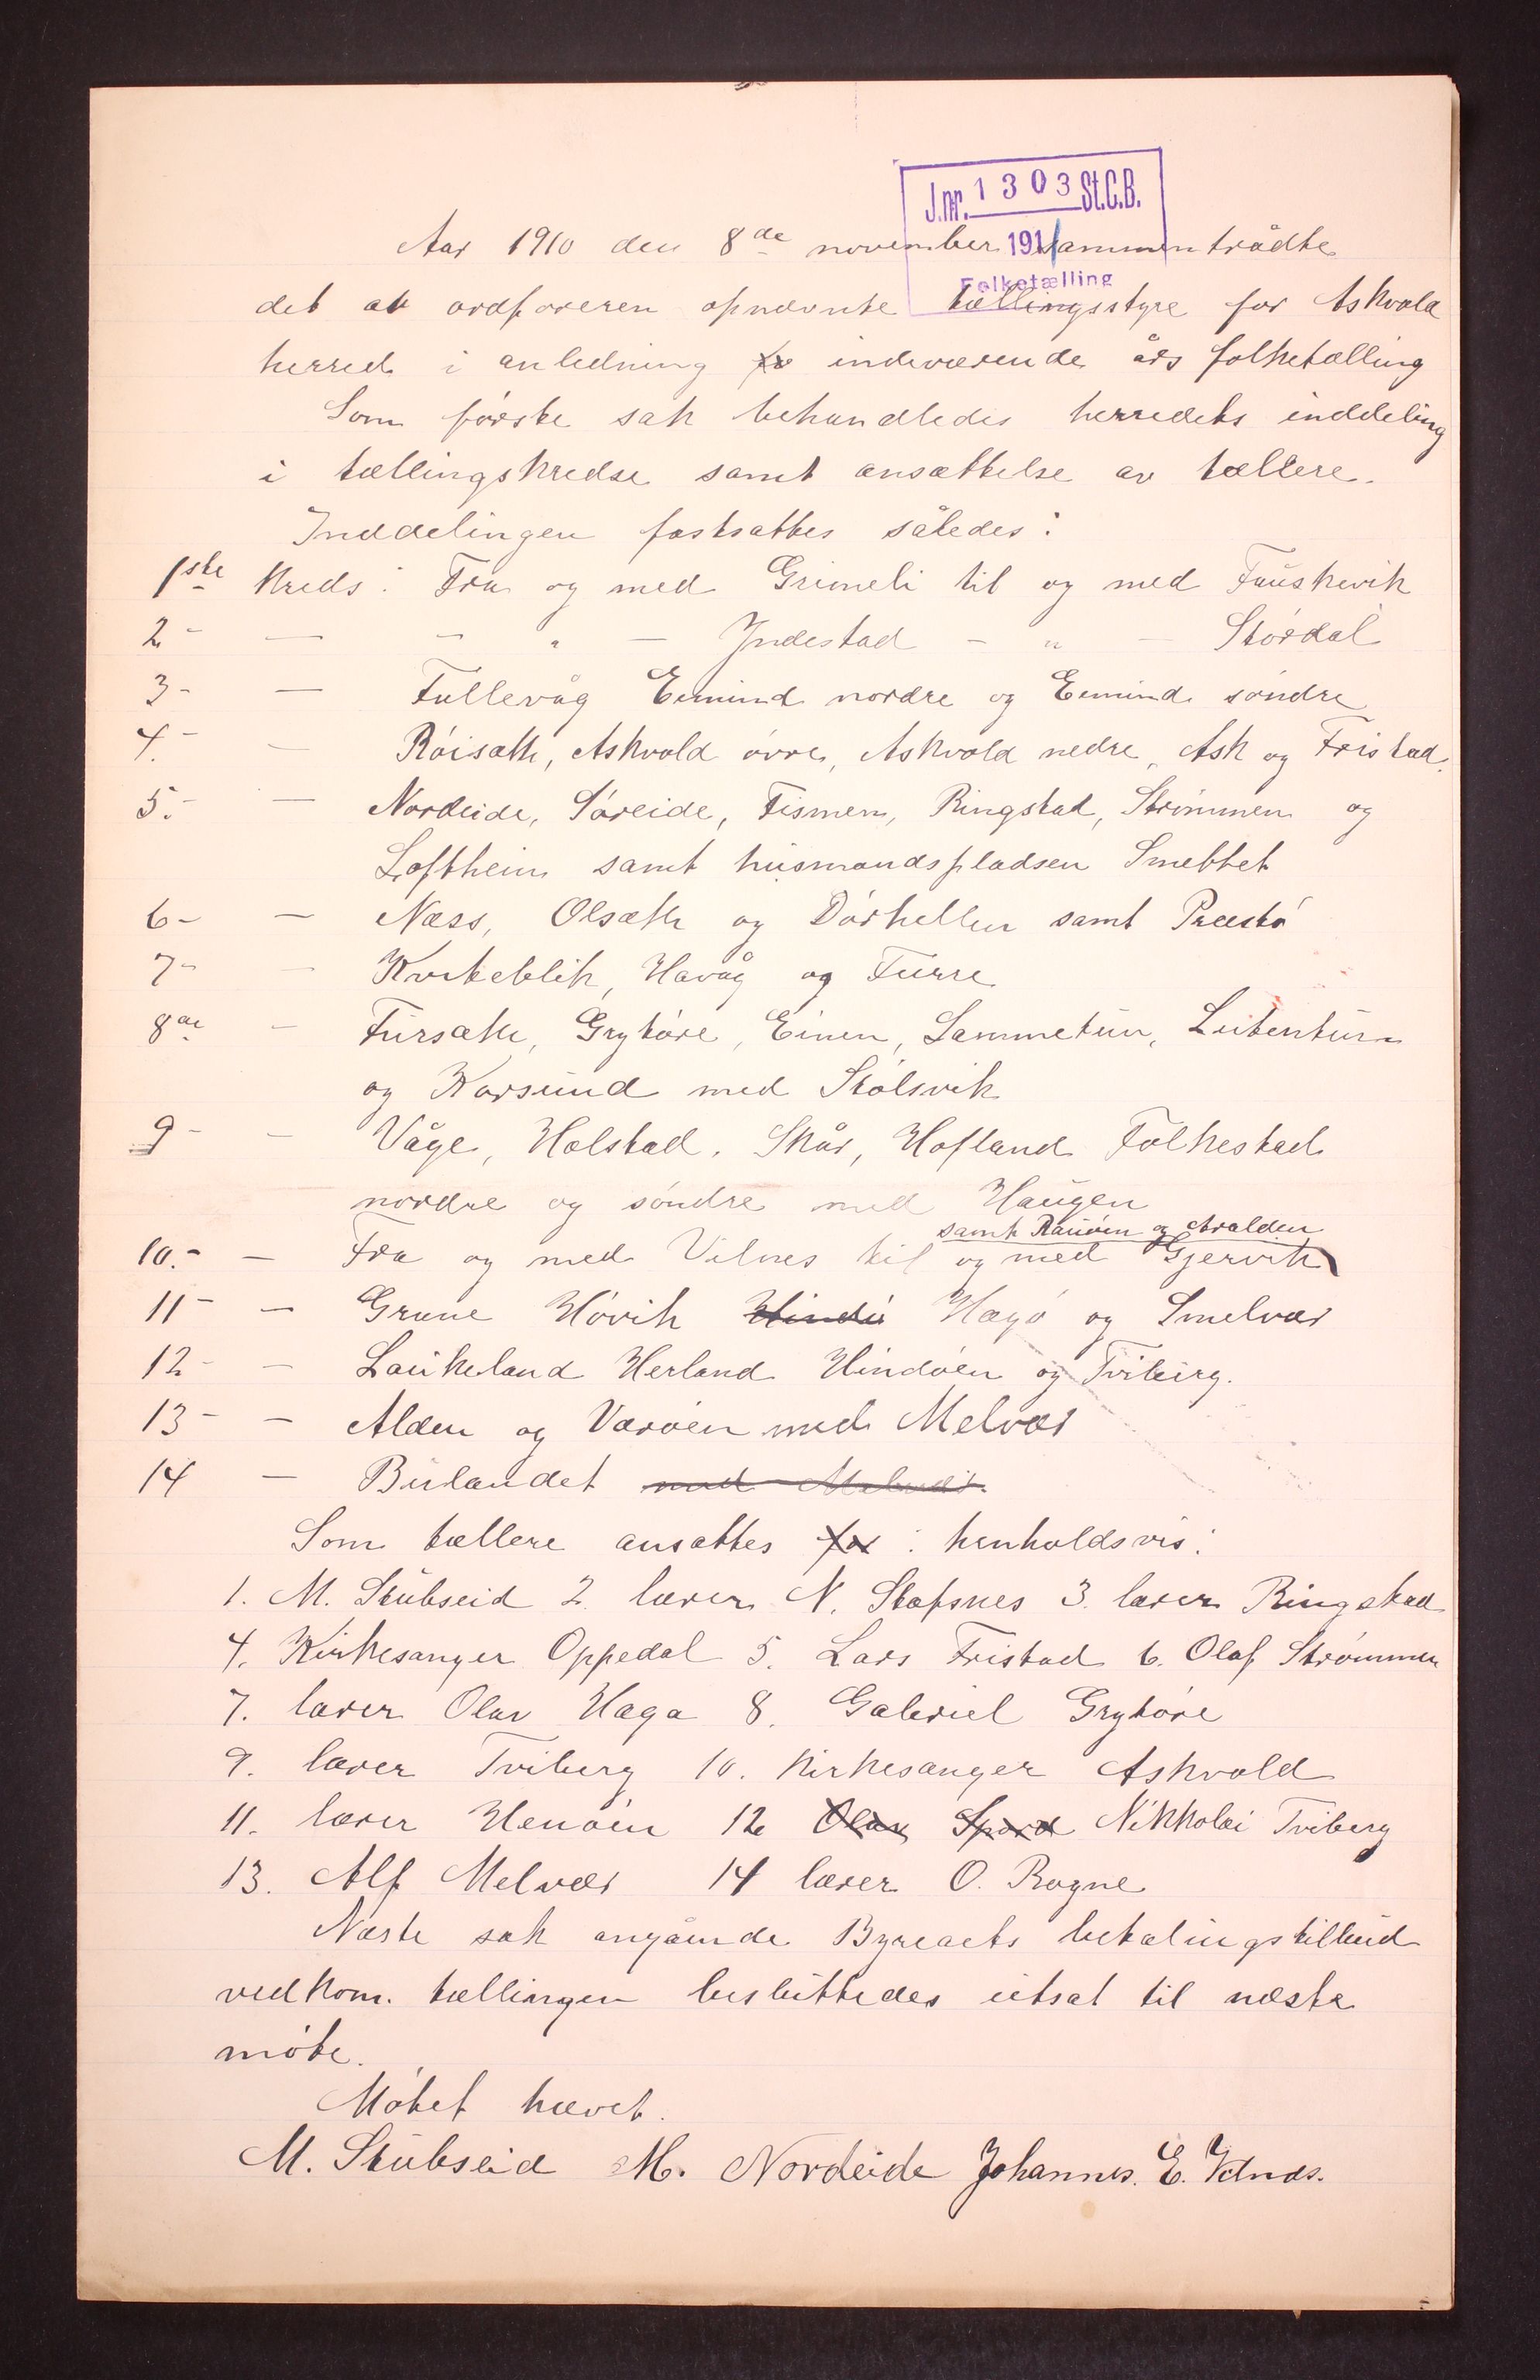 J.nr. 1303 St.C.B.
191
Folketælling
Aar 1910 den 8de november sammentrådte
det at ordføreren opnævnte tællingsstyre for Askvold
herred i anledning indeværende års folketælling
Som første sak behandledes herredets inddeling
i tællingskredse samt ansættelse av tællere.
Inddelingen fastsattes således:
1ste Kreds: Fra og med Grimeli til og med Fauskevik
2 - — - " — Indestad - " — Stórdal
3 - — Tullevåg Eimind nordre og Eimind søndre
4. — Róisæth, Askvold óvre, Askvold nedre, Ask og Fristad.
5. - — Nordeide, Sóreide, Tismen, Ringstad, Strømmen og
Loftheim samt húsmandspladsen Smettet
6 - — Næss, Olsæth og Dórhellen samt Præstó
7 - — Kviteblik, Havåg og Furre
8de — Fúrsæth, Grytóre, Einen, Lammetún, Lutentún
og Korsúnd med Stólsvik
9 - — Våge, Holstad, Skår, Hofland Folkestad
nordre og sóndre med Haúgen
samt Raúóen og Aralden
10. - — Fra og med Vilnes til og med Gjervik
11 - — Grane Hóvik Hindó Hægó og Smelvær
12 - — Laúkeland Herland Hindóen og Tviberg.
13 - — Alden og Værøen med Melvær
14 — Búlandet med Melvær.
Som tællere ansattes for : henholdsvis:
1. M. Stúbseid 2. lærer N. Stafsnes 3. lærer Ringstad
4. Kirkesanger Oppedal 5. Lars Fristad 6. Olaf Strømmen
7. lærer Olav Haga 8. Gabriel Grytóre
9. lærer Tviberg 10. Kirkesanger Askvold
11. lærer Henóen 12 Olav Nikkolai Tviberg
13. Alf Melvær 14 lærer O. Rogne
Næste sak angående Byreaets betalingstilbúd
vedkom. tællingen beslúttedes útsat til næste
móte.
Mótet hævet.
M. Stúbseid M. Nordeide Johannes. E.